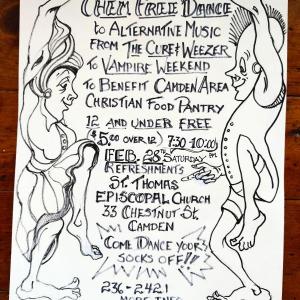 CHEM FREE DANCE
TO ALTERNATIVE MUSIC
FROM THE CURE & WEEZER
TO VAMPIRE WEEKEND
TO BENEFIT CAMDEN AREA
CHRISTIAN FOOD PANTRY
12 AND UNDER FREE
$5.00 OVER 12) 7:30-10:00 PM
FEB. 28TH SATURDAY
REFRESHMENTS
ST. THOMAS
EPISCOPAL CHURCH
33 CHESTNUT ST.
CAMDEN
COME DANCE YOUR
SOCKS OFF!!!
236-2421
MORE INFO